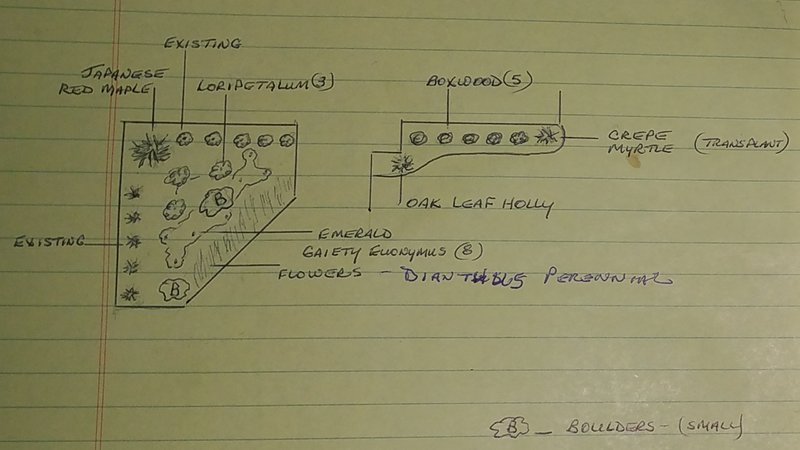 EXISTING
JAPANESE
RED MAPLE
LORIPETALUM (3)
BOXWOOD (5)
CREPE
MYRTLE (TRANSPLANT)
OAK LEAF HOLLY
B
EXISTING
EMERALD
GAIETY EUONYMUS (8)
FLOWERS - DIANTHUS PERENNIAL
B
B - BOULDERS - (SMALL)